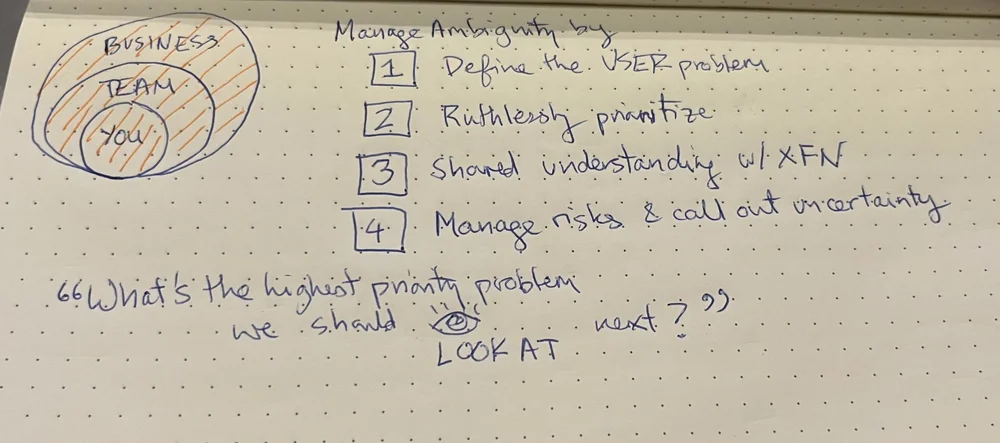 BUSINESS
TEAM
YOU
Manage Ambiguity by
1 Define the USER problem
2 Ruthlessly prioritize
3 Shared understanding w/ XFN
4 Manage risks & call out uncertainty
“What's the highest priority problem
we should LOOK AT next?”